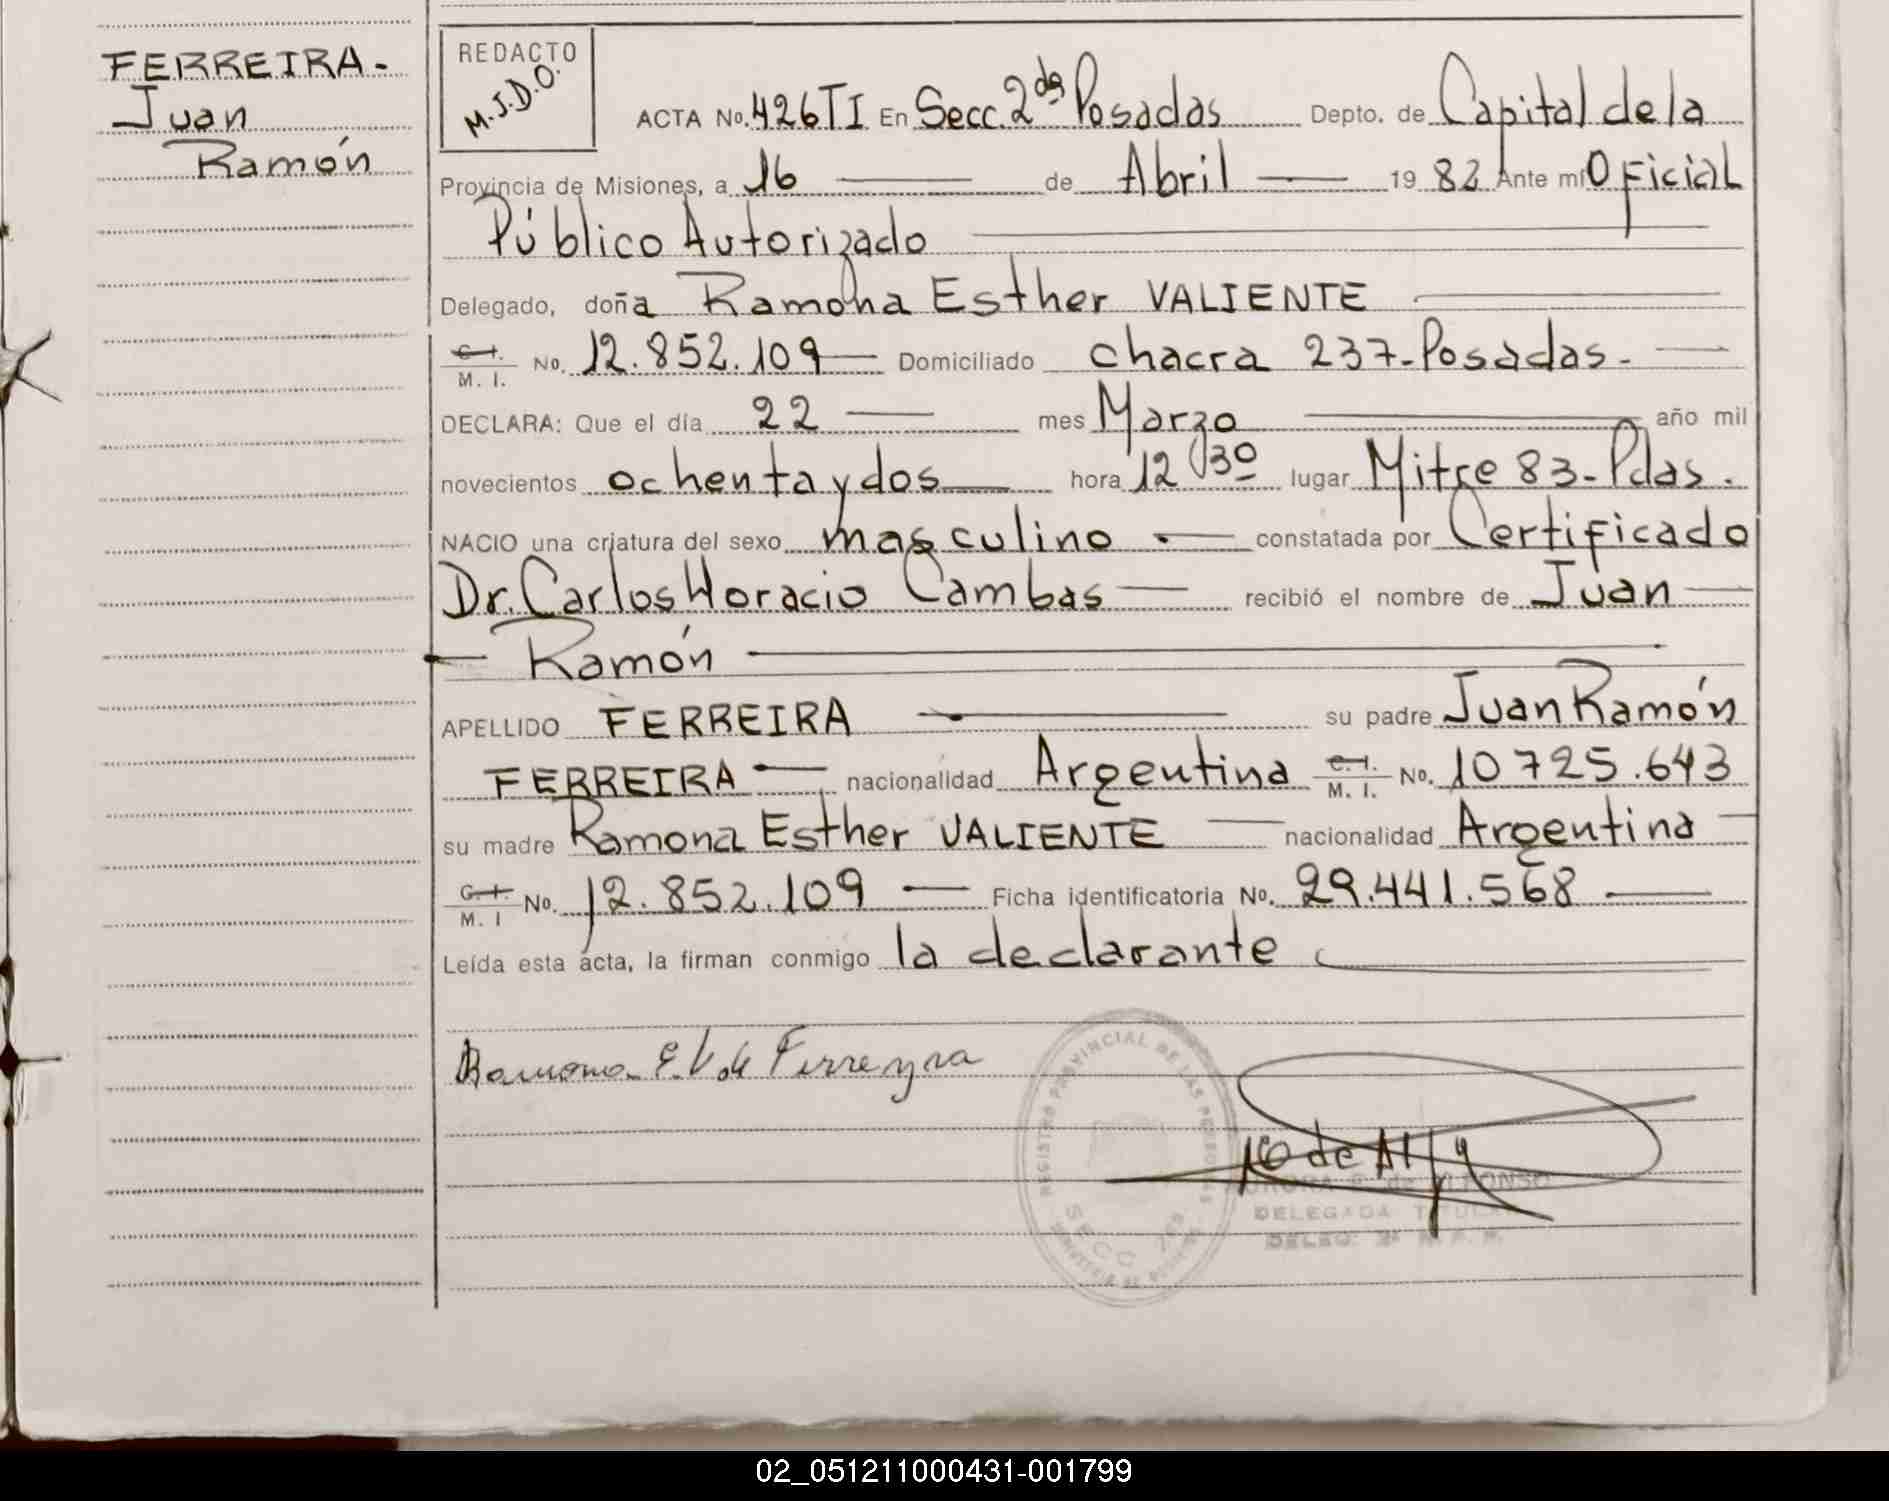 FERREIRA-
Juan
Ramón
REDACTO
M.J.D.O.
ACTA No. 426TI En Secc. 2da Posadas Depto. de Capital de la
Provincia de Misiones, a 16 de Abril 1982 Ante mí Oficial
Público Autorizado
Delegado, doña Ramona Esther VALIENTE
C.I. M. I. No. 12.852.109 Domiciliado chacra 237-Posadas.-
DECLARA: Que el día 22 mes Marzo año mil
novecientos ochenta y dos hora 12 30 lugar Mitre 83-Pdas.
NACIO una criatura del sexo masculino constatada por Certificado
Dr. Carlos Horacio Cambas recibió el nombre de Juan
Ramón
APELLIDO FERREIRA su padre Juan Ramón
FERREIRA nacionalidad Argentina C.I. M. I. No. 10725.643
su madre Ramona Esther VALIENTE nacionalidad Argentina
C.I. M. I No. 12.852.109 Ficha identificatoria No. 29.441.568
Leída esta acta, la firman conmigo la declarante
Ramona E.V de Ferreyra
REGISTRO PROVINCIAL DE LAS PERSONAS
SECC
de ALFONSO
DELEGADA TITULAR
DELEG. 2ª
02_051211000431-001799